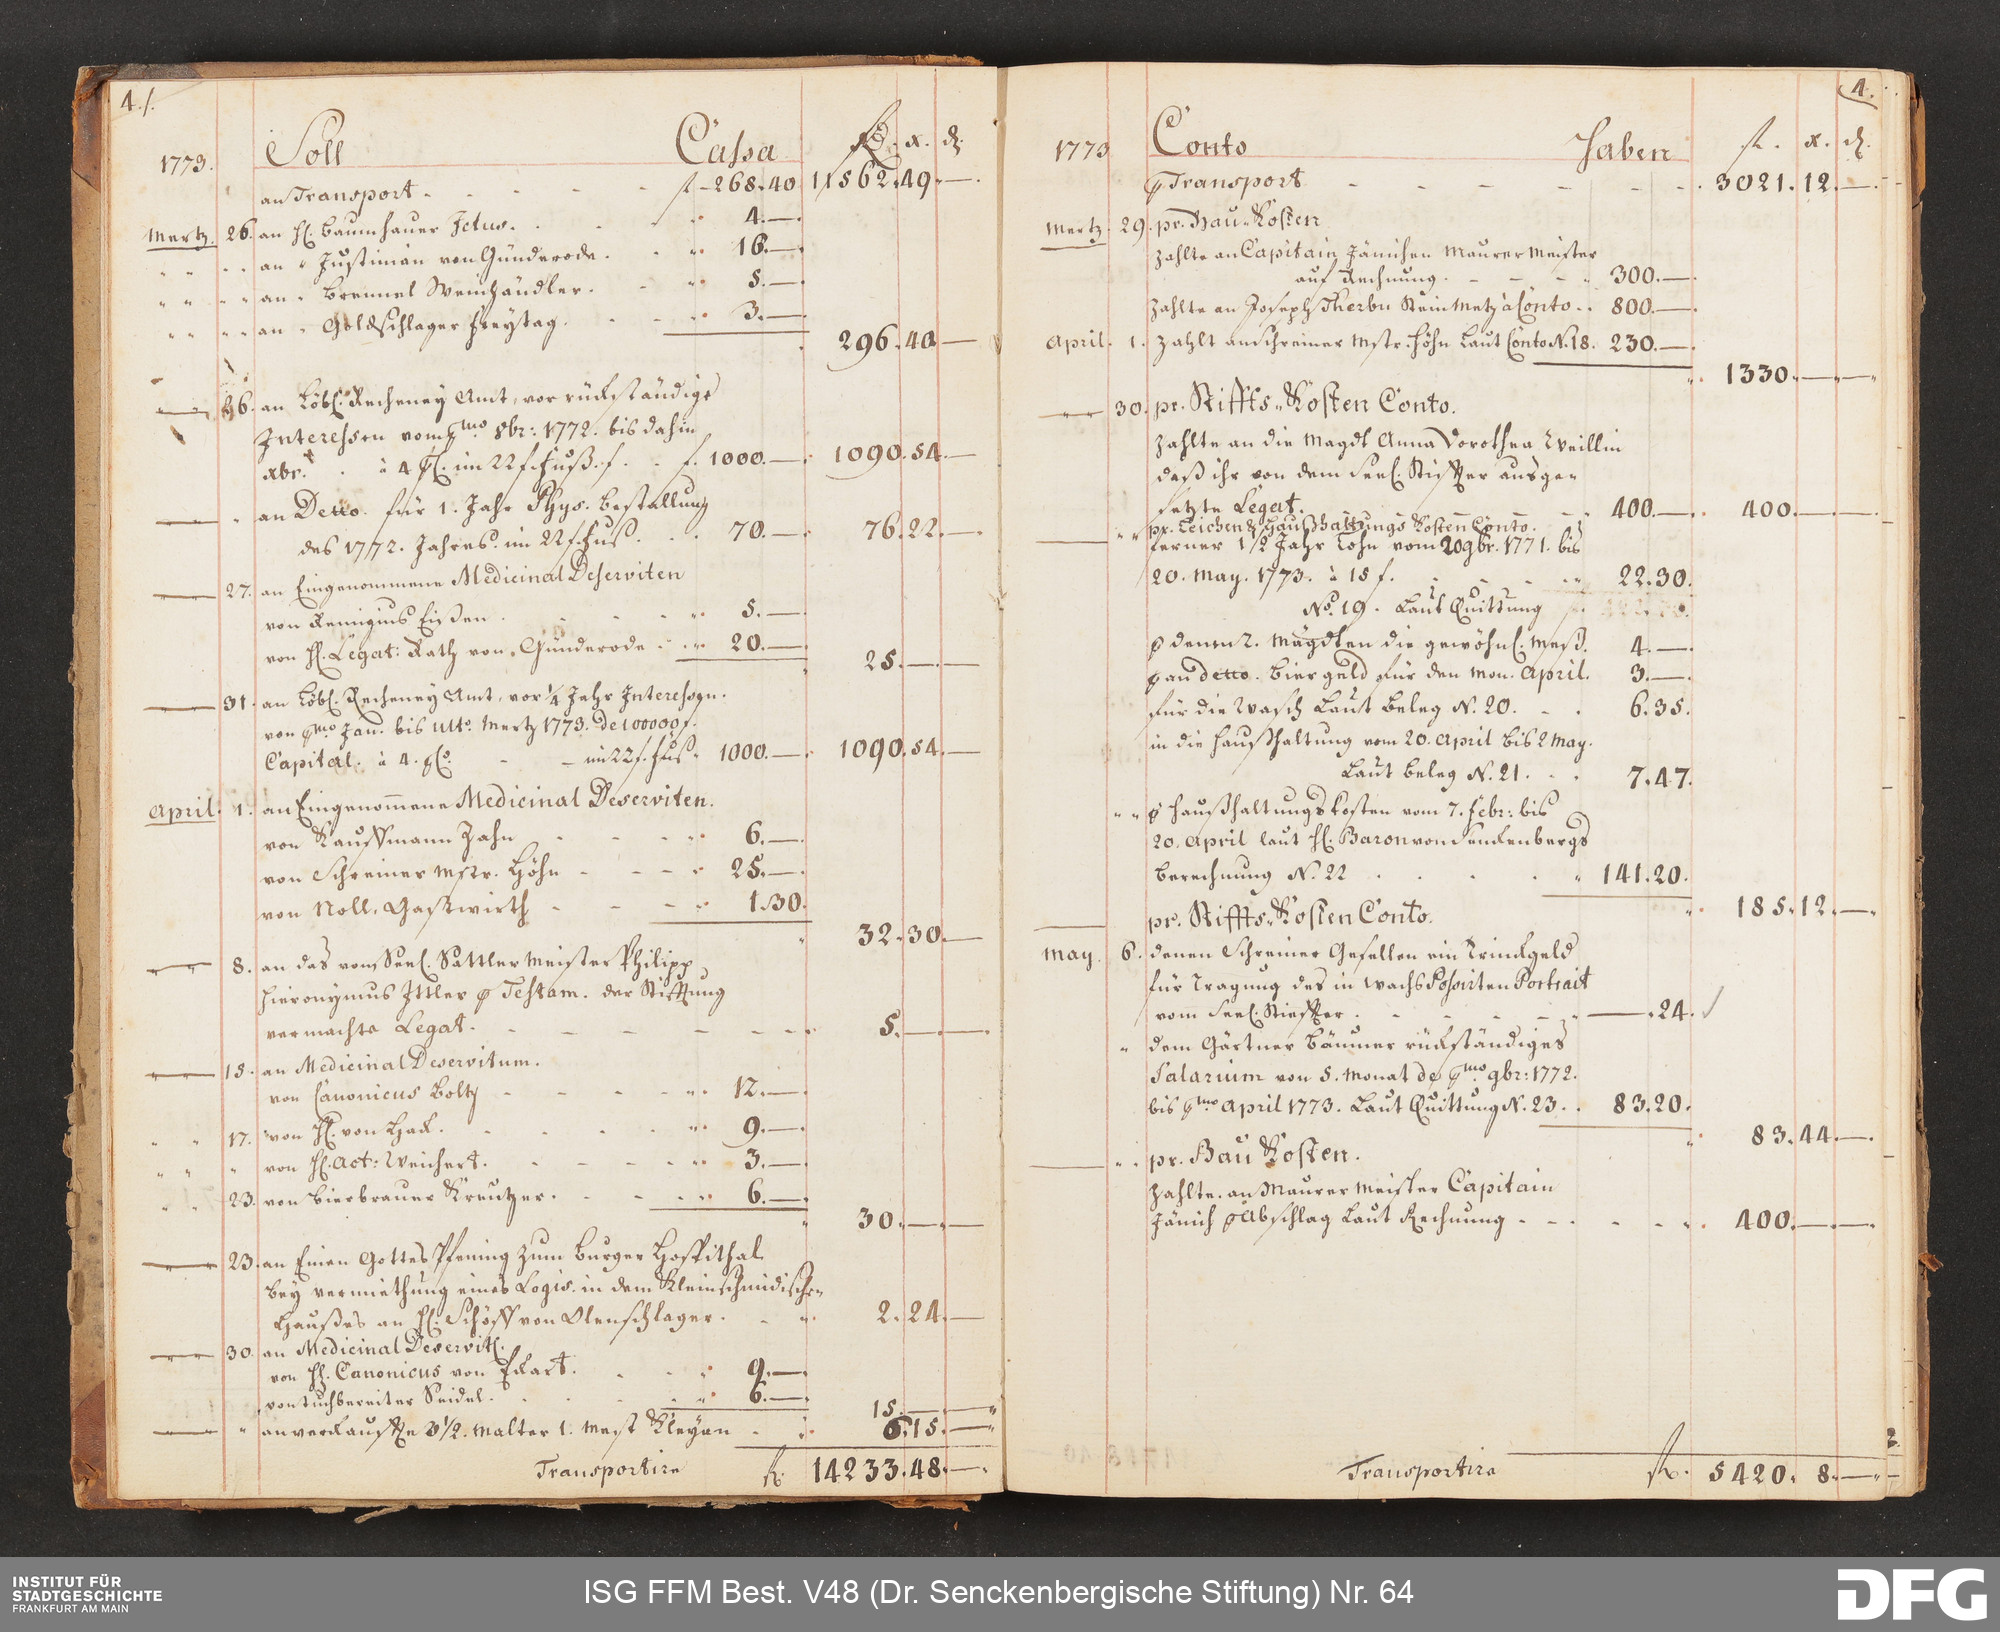 4./.
Soll Cassa f. x. ₰.
1773.
an Transport . - - - f - 268.40 11562.49.—.
Mertz. 26. an H. Baumhauer Jctus. 4.—.
" " " an " Justinian von Günderode. 16.—.
" " " " an " Brennel Weinhändler. 5.—.
" " " " an " Goldschlager Freytag. 3.—.
296.40.—
26. an Löbl. Recheney Amt, vor rückständige
Interessen vom 1mo 8br: 1772. bis dahin
xbr. à 4 pC. im 22 f. Fuß. f. 1000.—. 1090.54.—
an Detto. für 1. Jahr Phys. Bestallung
des 1772. Jahres. im 22 f. Fus. 70.—. 76.22.—.
27. an Eingenommene Medicinal Deserviten
von Remigius 5.—.
von H. Legat: Rath von Günderode 20.—.
25.—.—
31. an Löbl. Recheney Amt, vor 1/4 Jahr Interessen.
von 1mo Jan. bis ulto. Mertz 1773. de 100000 f.
Capital. à 4. pCo. - - im 22 f. Fus. 1000.—. 1090.54.—
April. 1. an Eingenommene Medicinal Deserviten.
von Kauffmann Zahn 6.—.
von Schreiner Mstr. Höhn 25.—.
von Noll, Gastwirth 1.30.
32.30.—
8. an das vom Seel. Sattler Meister Philipp
Hieronymus Ittler p Testam. der Stifftung
vermachte Legat. 5.—.—.
15. an Medicinal Deservitum.
von Canonicus Boltz 12.—.
" " 17. von H. von Hack. 9.—.
" " " von H. Act: Weichert. 3.—.
" " 23. von Bierbrauer Kreutzer. 6.—.
30.—.—
23. an Einen Gottes Pfening zum Burger Hospithal
bey vermiethung eines Logis in dem Kleinschmidischen
Haußes an H. Schöff von Olenschlager. 2.24.—
30. an Medicinal Deservit.
von H. Canonicus von Eckart. 9.—.
von Tuchbereiter Seidel. 6.—.
15.—.—"
" an verkauffte 3 1/2. Malter 1. Mest Kleyen 6.15.—"
Transportire f. 14233.48.—.
4.
Conto Haben f. x. ₰.
1773
p Transport - - - - - 3021.12.—.
Mertz. 29. pr. Bau-Kosten
Zahlte an Capitain Jänichen Maurer Meister
auf Rechnung. 300.—.
Zahlte an Joseph Therbu Steinmetz à Conto. 800.—.
April. 1. Zahlt an Schreiner Mstr. Höhn Laut Conto N. 18. 230.—.
1330.—.—"
30. pr. Stiffts-Kosten Conto.
Zahlte an die Magdt Anna Dorothea Weillin
daß ihr von dem Seel. Stiffter ausge-
setzte Legat. 400.—. 400.—.—
" " pr. Leichen & Haußhaltungs Kosten Conto.
ferner 1 1/2 Jahr Lohn vom 20 9br. 1771. bis
20. May. 1773. à 15 f. 22.30.
No. 19. Laut Quittung
p denen 2. Mägdten die gewöhnl. Meß. 4.—.
p an detto. Biergeld für den Mon. April. 3.—.
für die Wasch Laut Beleg N. 20. 6.35.
in die Haußhaltung vom 20. April bis 2 May.
Laut Beleg N. 21. 7.47.
" " p Haußhaltungskosten vom 7. Febr: bis
20. April laut H. Baron von Senckenbergs
Berechnung N. 22 141.20.
185.12.—"
pr. Stiffts-Kosten Conto.
May. 6. denen Schreiner Gesellen ein Trinckgeld
für Tragung des in Wachs Posirten Portrait
vom Seel. Stieffter. —.24.
" dem Gärtner Bäumer rückständiges
Salarium von 5. Monat de 1mo 9br: 1772.
bis 1mo April 1773. Laut Quittung N. 23. 83.20.
83.44.—.
" " pr. Bau Kosten.
Zahlte an Maurer Meister Capitain
Jänich p Abschlag Laut Rechnung 400.—.—.
Transportire f. 5420. 8.—"—
INSTITUT FÜR
STADTGESCHICHTE
FRANKFURT AM MAIN
ISG FFM Best. V48 (Dr. Senckenbergische Stiftung) Nr. 64
DFG